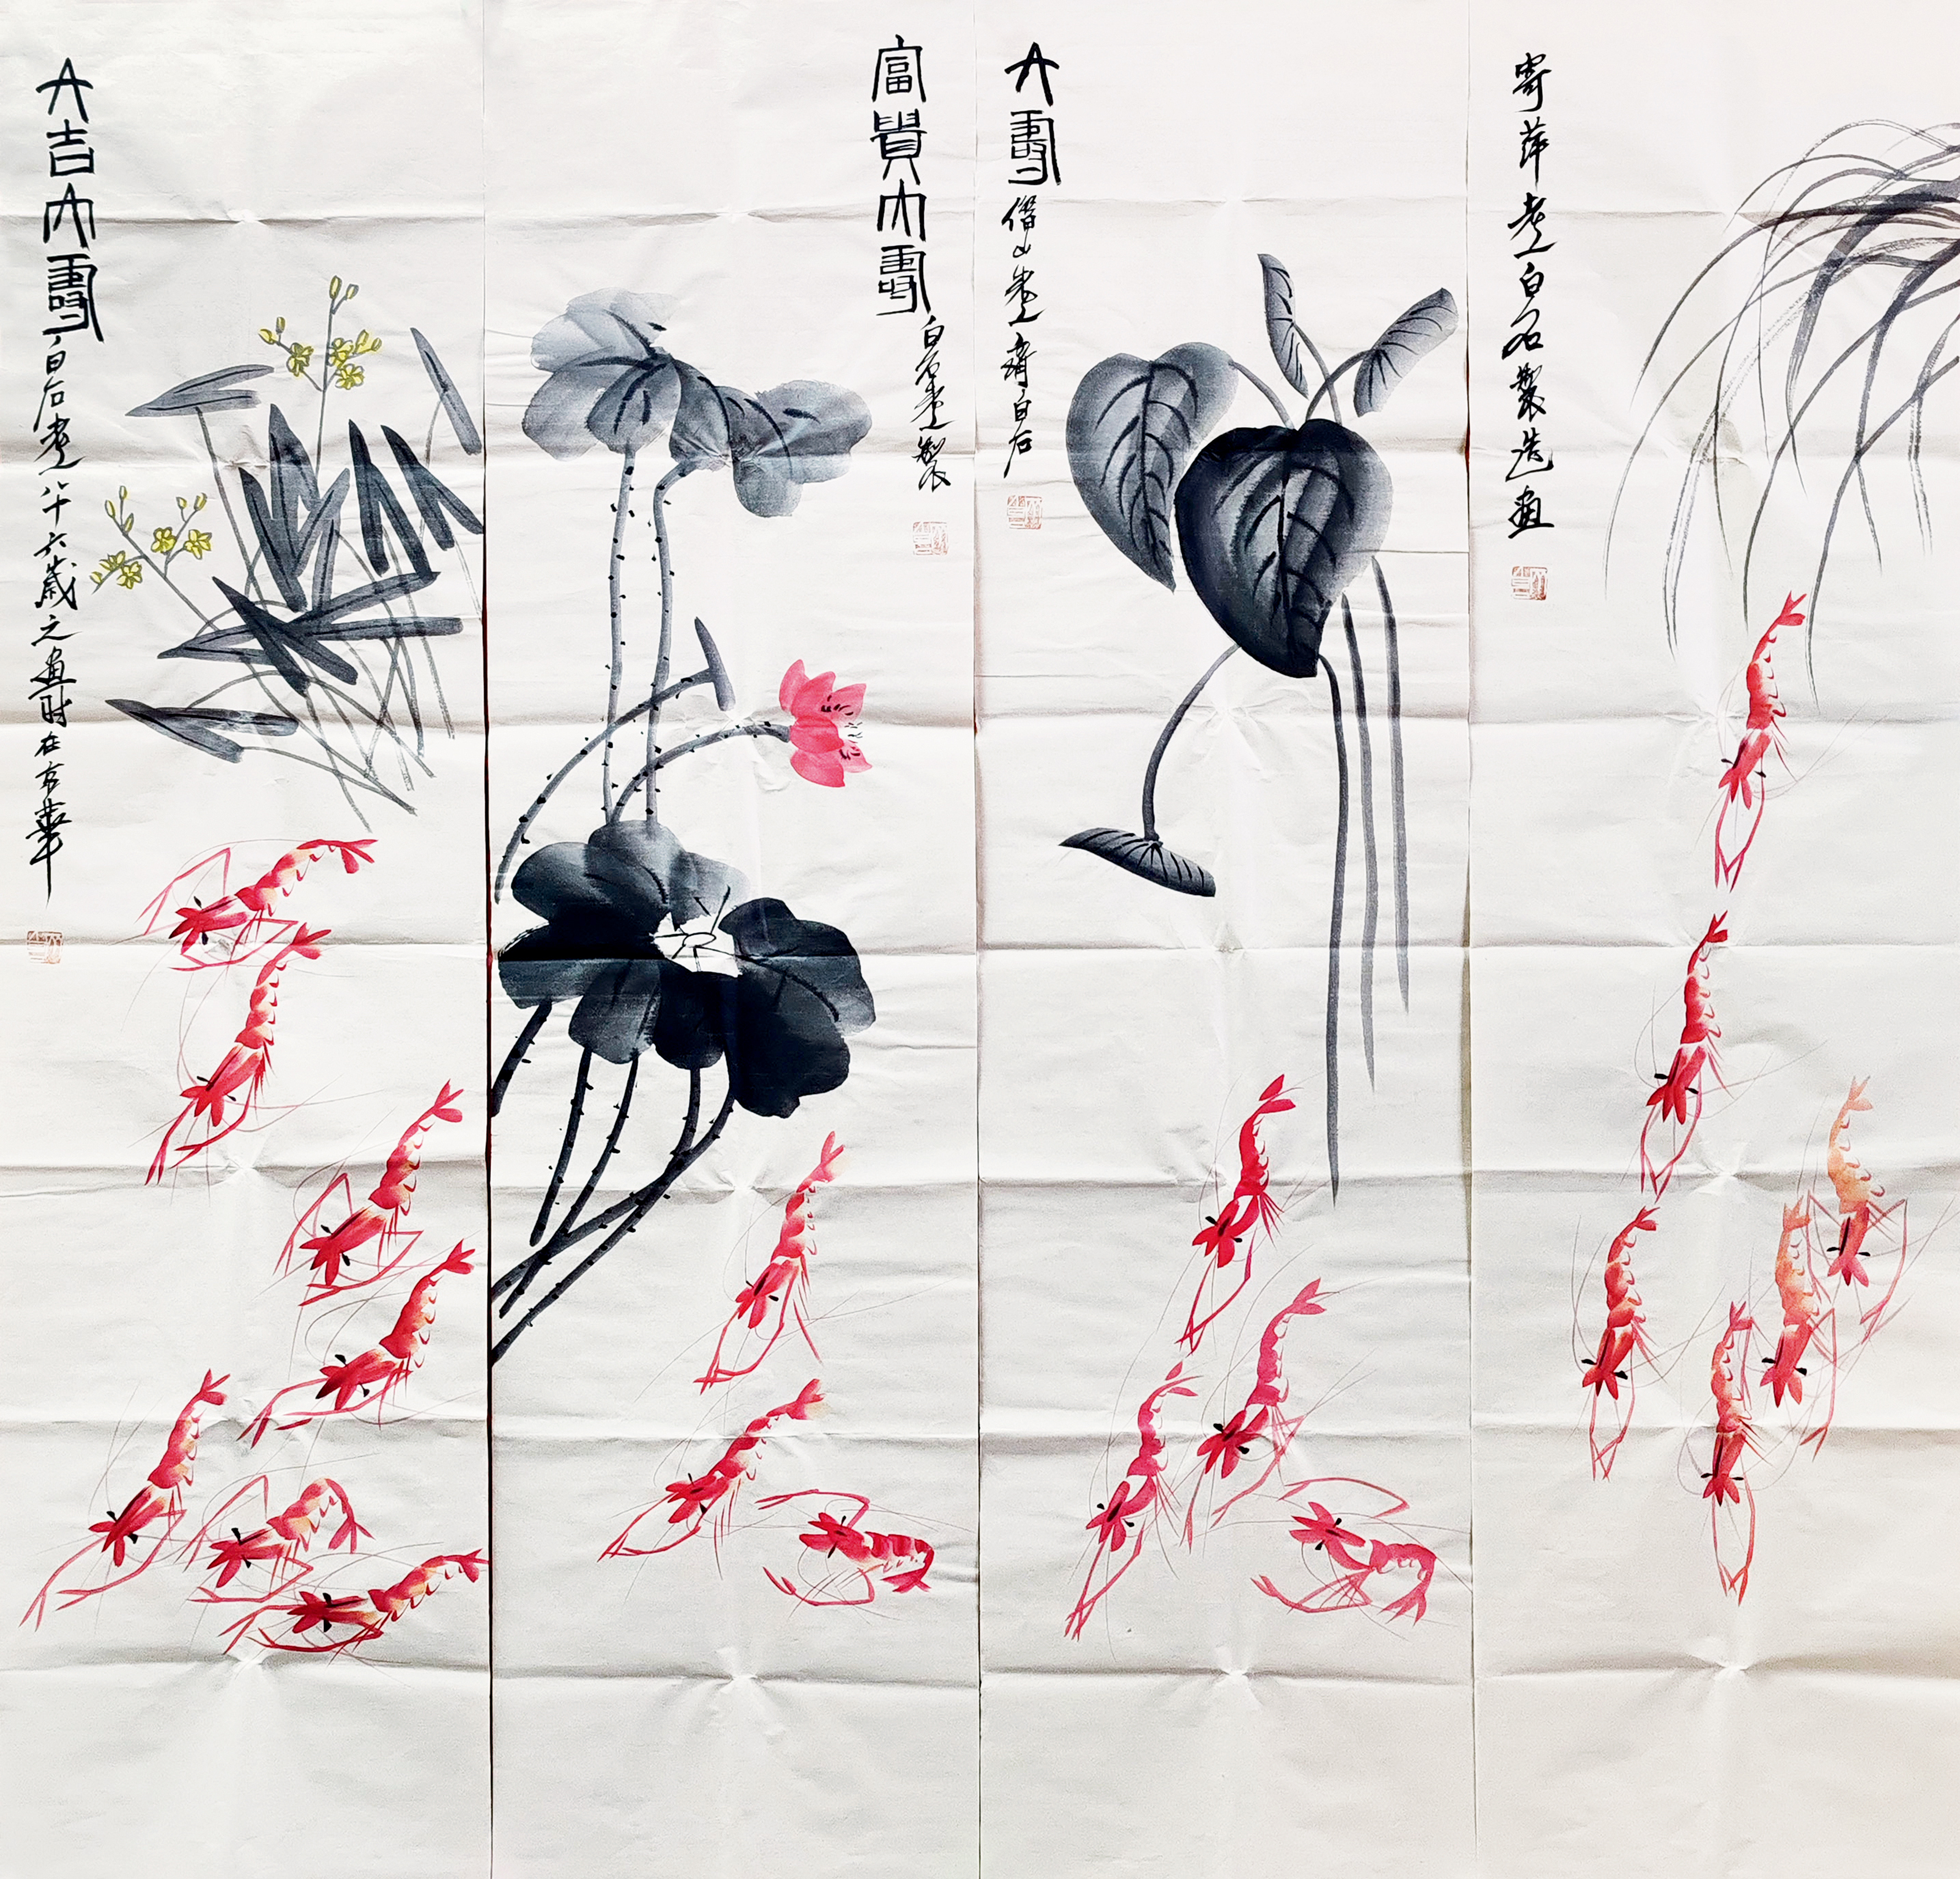 寄萍老人白石製造画
大壽
借山老人齊白石
富貴大壽
白石老人製
大吉大壽
白石老人八十六歲之画時在京華